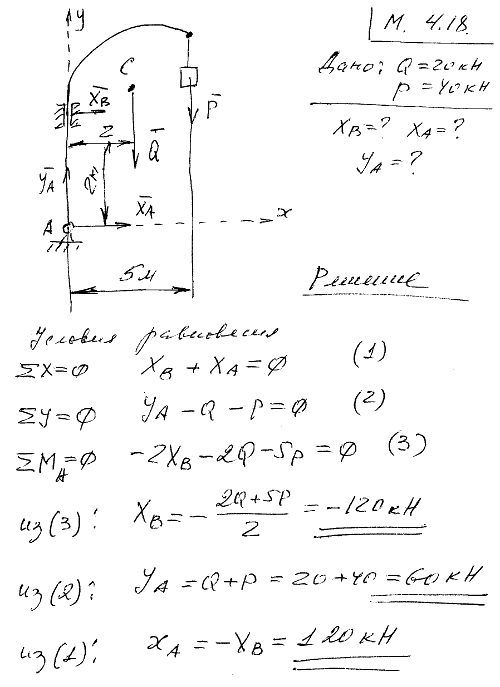 y
М. 4.18.
Дано: Q = 20 кН
P = 40 кН
C
X̄_B
P̄
2
Q̄
X_B = ? X_A = ?
Y_A = ?
Ȳ_A
2м
A
X̄_A
x
5м
Решение
Условия равновесия
ΣX=0 X_B + X_A = 0 (1)
ΣY=0 Y_A − Q − P = 0 (2)
ΣM_A=0 −2X_B − 2Q − 5P = 0 (3)
из (3): X_B = − (2Q+5P)/2 = −120 кН
из (2): Y_A = Q+P = 20+40 = 60 кН
из (1): x_A = −X_B = 120 кН